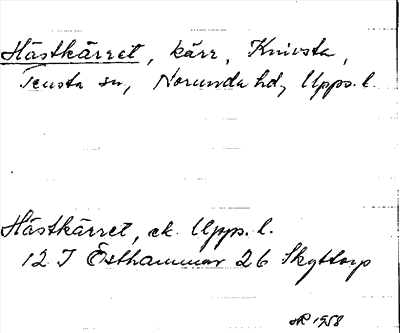 Hästkärret, kärr, Knivsta,
Tensta sn, Norunda hd, Upps. l.
Hästkärret, ek. Upps. l.
12 I Östhammar 26 Skyttorp
1958